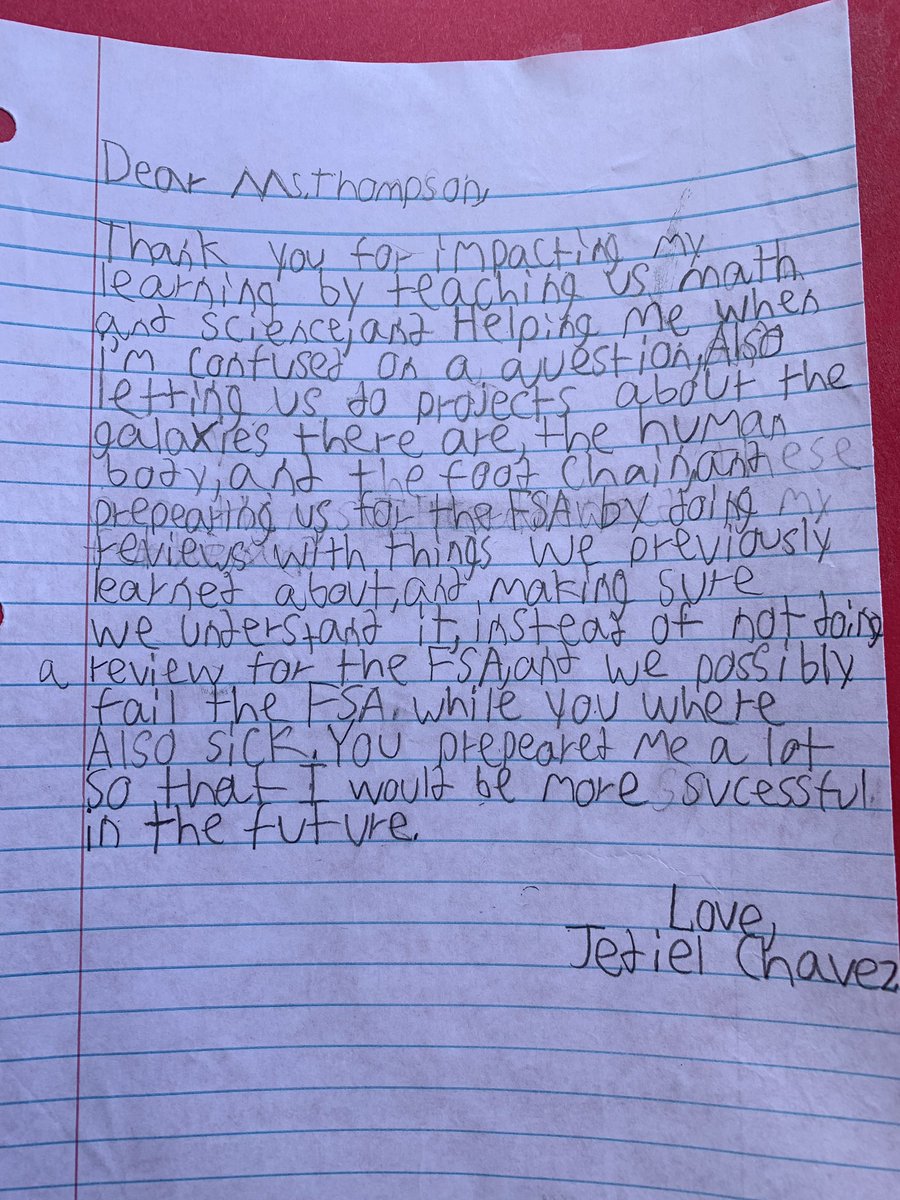 Dear Ms.Thompson,
Thank you for impacting my
learning by teaching us math
and science,and Helping me when
i'm confused on a question,Also
letting us do projects about the
galaxies there are, the human
body,and the food chain,and ese
prepearing us for the FSA by doing my
reviews with things we previously
learned about,and making sure
we understand it,instead of not doing
a review for the FSA,and we possibly
fail the FSA. while you where
Also sick. You prepeared me a lot
so that I would be more sucessful
in the future.
Love,
Jediel Chavez